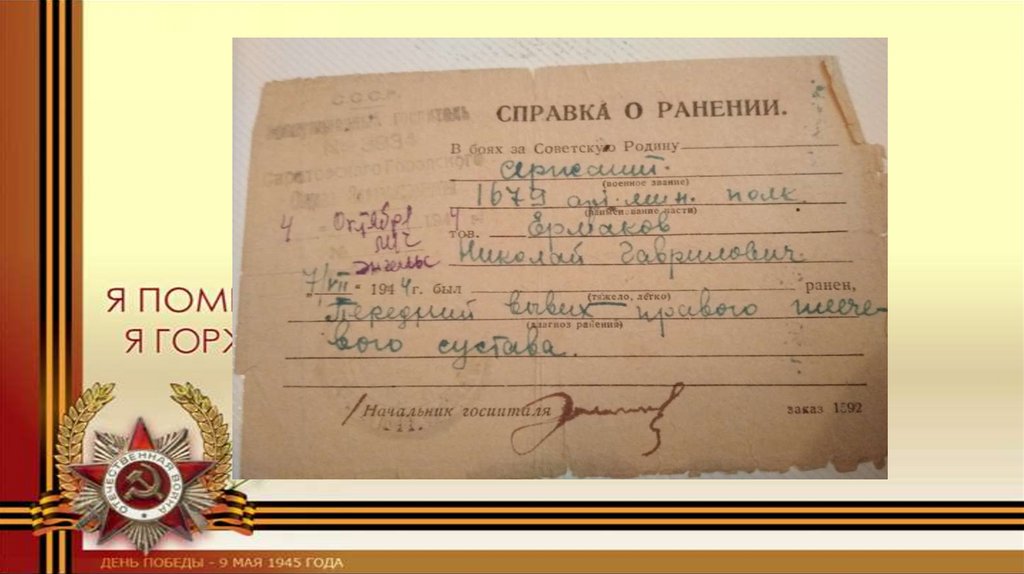 СССР.
№ 3934
СПРАВКА О РАНЕНИИ.
В боях за Советскую Родину
сержант
(военное звание)
1679 арт. мин. полк.
(наименование части)
4 Октября 194 4
м.г. Энгельс
тов. Ермаков
Николай Гаврилович
7/VII - 1944 г. был ранен,
(тяжело, легко)
Передний вывих правого плече-
(диагноз ранения)
вого сустава.
Начальник госпиталя
заказ 1592
Я ПОМ
Я ГОР
ОТЕЧЕСТВЕННАЯ ВОЙНА
ДЕНЬ ПОБЕДЫ - 9 МАЯ 1945 ГОДА